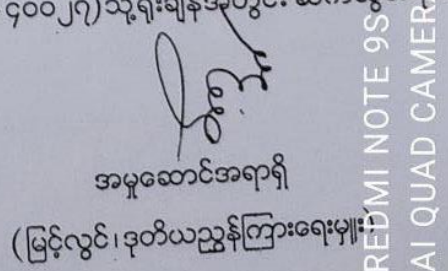 ၄၀၀၂၇)သို့ရုံးချိန်အတွင်း
အမှုဆောင်အရာရှိ
(မြင့်လွင်၊ဒုတိယညွှန်ကြားရေးမှူး)
REDMI NOTE 9S
AI QUAD CAMER